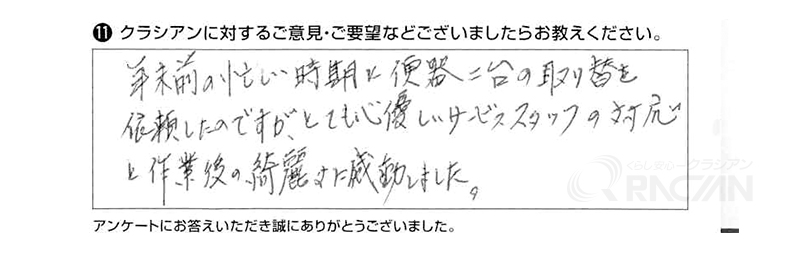 ⓫ クラシアンに対するご意見・ご要望などございましたらお教えください。
年末前の忙しい時期に便器二台の取り替を
依頼したのですが、とても心優しいサービススタッフの対応
と作業後の綺麗さに感動しました。
くらし安心クラシアン
QRACIAN
アンケートにお答えいただき誠にありがとうございました。